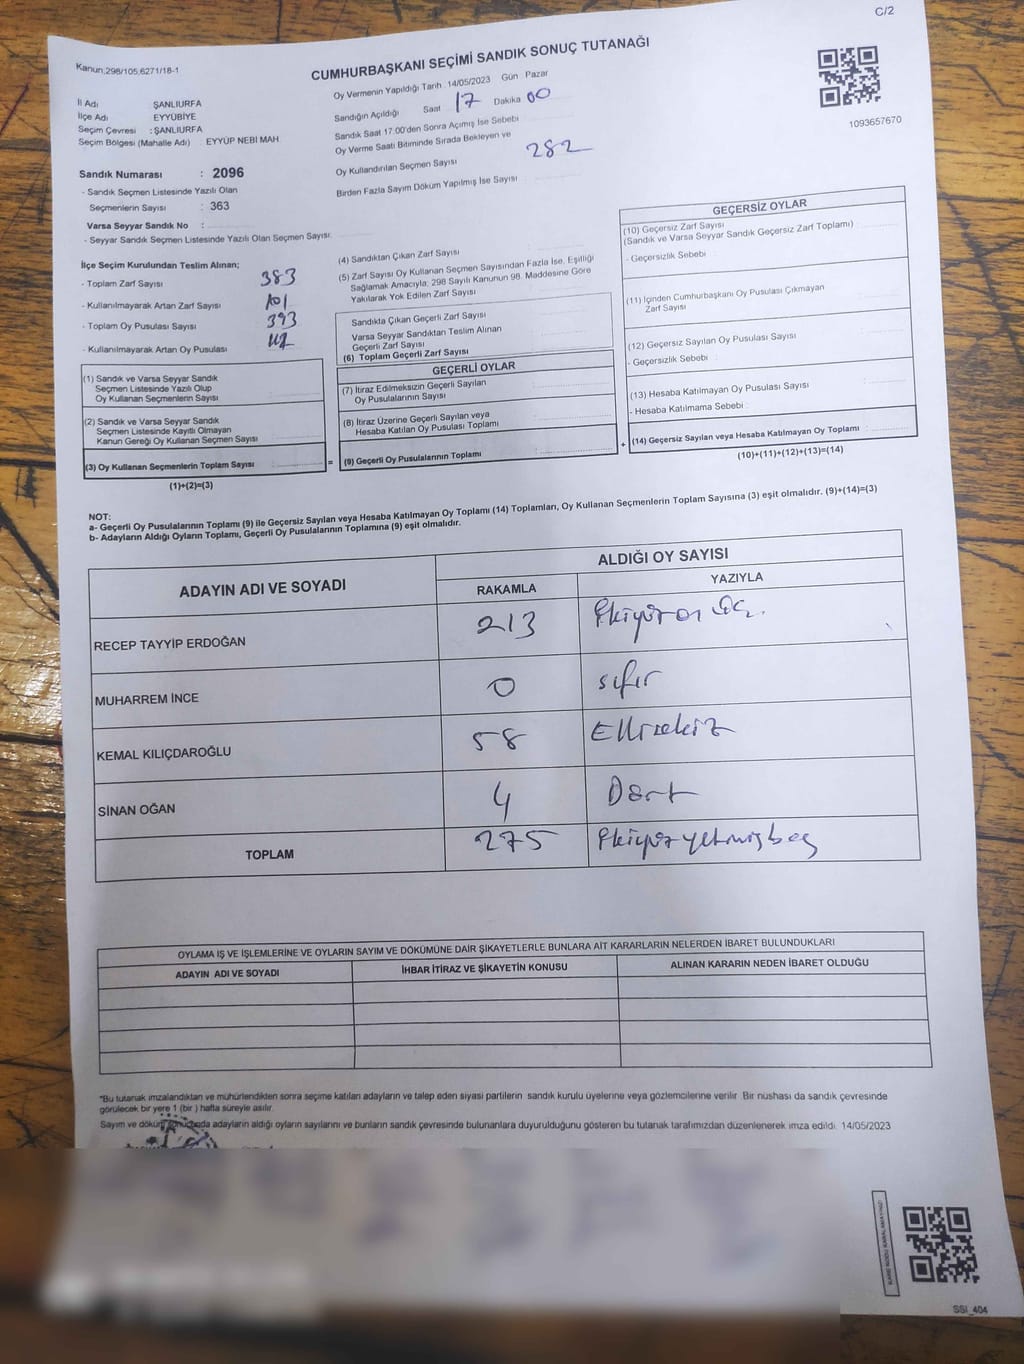 C/2
Kanun;298/105,6271/18-1
CUMHURBAŞKANI SEÇİMİ SANDIK SONUÇ TUTANAĞI
İl Adı ŞANLIURFA
İlçe Adı EYYÜBİYE
Seçim Çevresi : ŞANLIURFA
Seçim Bölgesi (Mahalle Adı) : EYYÜP NEBİ MAH
Oy Vermenin Yapıldığı Tarih : 14/05/2023 Gün Pazar
Sandığın Açıldığı Saat 17 Dakika 00
Sandık Saat 17.00'den Sonra Açımış İse Sebebi
Oy Verme Saati Bitiminde Sırada Bekleyen ve
Oy Kullandırılan Seçmen Sayısı 282
Birden Fazla Sayım Döküm Yapılmış İse Sayısı :
1093657670
Sandık Numarası : 2096
- Sandık Seçmen Listesinde Yazılı Olan
Seçmenlerin Sayısı : 363
Varsa Seyyar Sandık No :
- Seyyar Sandık Seçmen Listesinde Yazılı Olan Seçmen Sayısı:
İlçe Seçim Kurulundan Teslim Alınan;
- Toplam Zarf Sayısı 383
- Kullanılmayarak Artan Zarf Sayısı 101
- Toplam Oy Pusulası Sayısı 393
- Kullanılmayarak Artan Oy Pusulası
(1) Sandık ve Varsa Seyyar Sandık
Seçmen Listesinde Yazılı Olup
Oy Kullanan Seçmenlerin Sayısı :
(2) Sandık ve Varsa Seyyar Sandık
Seçmen Listesinde Kayıtlı Olmayan
Kanun Gereği Oy Kullanan Seçmen Sayısı :
(3) Oy Kullanan Seçmenlerin Toplam Sayısı : =
(1)+(2)=(3)
(4) Sandıktan Çıkan Zarf Sayısı
(5) Zarf Sayısı Oy Kullanan Seçmen Sayısından Fazla İse, Eşitliği
Sağlamak Amacıyla; 298 Sayılı Kanunun 98. Maddesine Göre
Yakılarak Yok Edilen Zarf Sayısı
Sandıkta Çıkan Geçerli Zarf Sayısı
Varsa Seyyar Sandıktan Teslim Alınan
Geçerli Zarf Sayısı
(6) Toplam Geçerli Zarf Sayısı
GEÇERLİ OYLAR
(7) İtiraz Edilmeksizin Geçerli Sayılan
Oy Pusulalarının Sayısı
(8) İtiraz Üzerine Geçerli Sayılan veya
Hesaba Katılan Oy Pusulası Toplamı
(9) Geçerli Oy Pusulalarının Toplamı : +
GEÇERSİZ OYLAR
(10) Geçersiz Zarf Sayısı
(Sandık ve Varsa Seyyar Sandık Geçersiz Zarf Toplamı) :
- Geçersizlik Sebebi :
(11) İçinden Cumhurbaşkanı Oy Pusulası Çıkmayan
Zarf Sayısı
(12) Geçersiz Sayılan Oy Pusulası Sayısı
- Geçersizlik Sebebi :
(13) Hesaba Katılmayan Oy Pusulası Sayısı
- Hesaba Katılmama Sebebi :
(14) Geçersiz Sayılan veya Hesaba Katılmayan Oy Toplamı :
(10)+(11)+(12)+(13)=(14)
NOT:
a- Geçerli Oy Pusulalarının Toplamı (9) ile Geçersiz Sayılan veya Hesaba Katılmayan Oy Toplamı (14) Toplamları, Oy Kullanan Seçmenlerin Toplam Sayısına (3) eşit olmalıdır. (9)+(14)=(3)
b- Adayların Aldığı Oyların Toplamı, Geçerli Oy Pusulalarının Toplamına (9) eşit olmalıdır.
ADAYIN ADI VE SOYADI ALDIĞI OY SAYISI
RAKAMLA YAZIYLA
RECEP TAYYİP ERDOĞAN 213 İkiyüz on üç.
MUHARREM İNCE 0 sıfır
KEMAL KILIÇDAROĞLU 58 Ellisekiz
SİNAN OĞAN 4 Dört
TOPLAM 275 İkiyüzyetmişbeş
OYLAMA İŞ VE İŞLEMLERİNE VE OYLARIN SAYIM VE DÖKÜMÜNE DAİR ŞİKAYETLERLE BUNLARA AİT KARARLARIN NELERDEN İBARET BULUNDUKLARI
ADAYIN ADI VE SOYADI İHBAR İTİRAZ VE ŞİKAYETİN KONUSU ALINAN KARARIN NEDEN İBARET OLDUĞU
*Bu tutanak imzalandıktan ve mühürlendikten sonra seçime katılan adayların ve talep eden siyasi partilerin sandık kurulu üyelerine veya gözlemcilerine verilir. Bir nüshası da sandık çevresinde
görülecek bir yere 1 (bir ) hafta süreyle asılır.
Sayım ve döküm sonucunda adayların aldığı oyların sayılarını ve bunların sandık çevresinde bulunanlara duyurulduğunu gösteren bu tutanak tarafımızdan düzenlenerek imza edildi. 14/05/2023
SSI_404